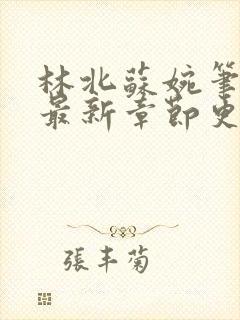 林北蘇婉筆
最新章節史
張丰菊